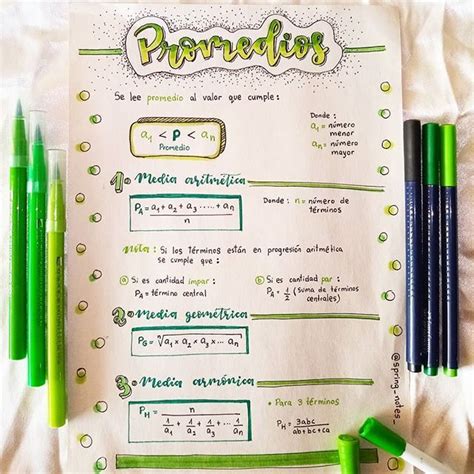 Promedios
Se lee promedio al valor que cumple:
a₁ < P < aₙ
Promedio
Donde :
a₁ = número menor
aₙ = número mayor
1. Media aritmética
P_A = (a₁ + a₂ + a₃ ..... + aₙ) / n
Donde : n = número de términos
nota : Si los términos están en progresión aritmética
se cumple que :
ⓐ Si es cantidad impar :
P_A = término central
ⓑ Si es cantidad par :
P_A = 1/2 (suma de términos centrales)
2. Media geométrica
P_G = ⁿ√(a₁ x a₂ x a₃ ... aₙ)
3. Media armónica
P_H = n / (1/a₁ + 1/a₂ + 1/a₃ + ... 1/aₙ)
• Para 3 términos
P_H = 3abc / (ab+bc+ca)
@spring_notes_